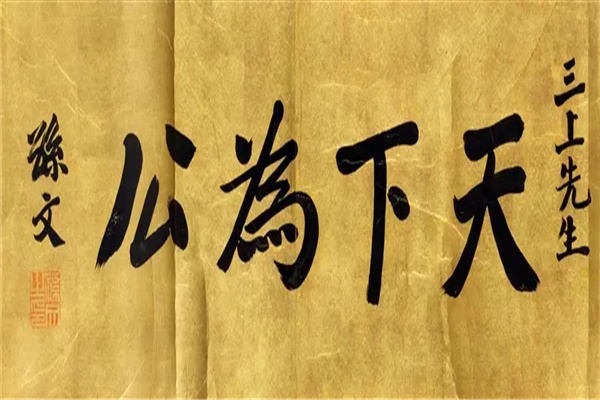 三上先生
天下為公
孫文